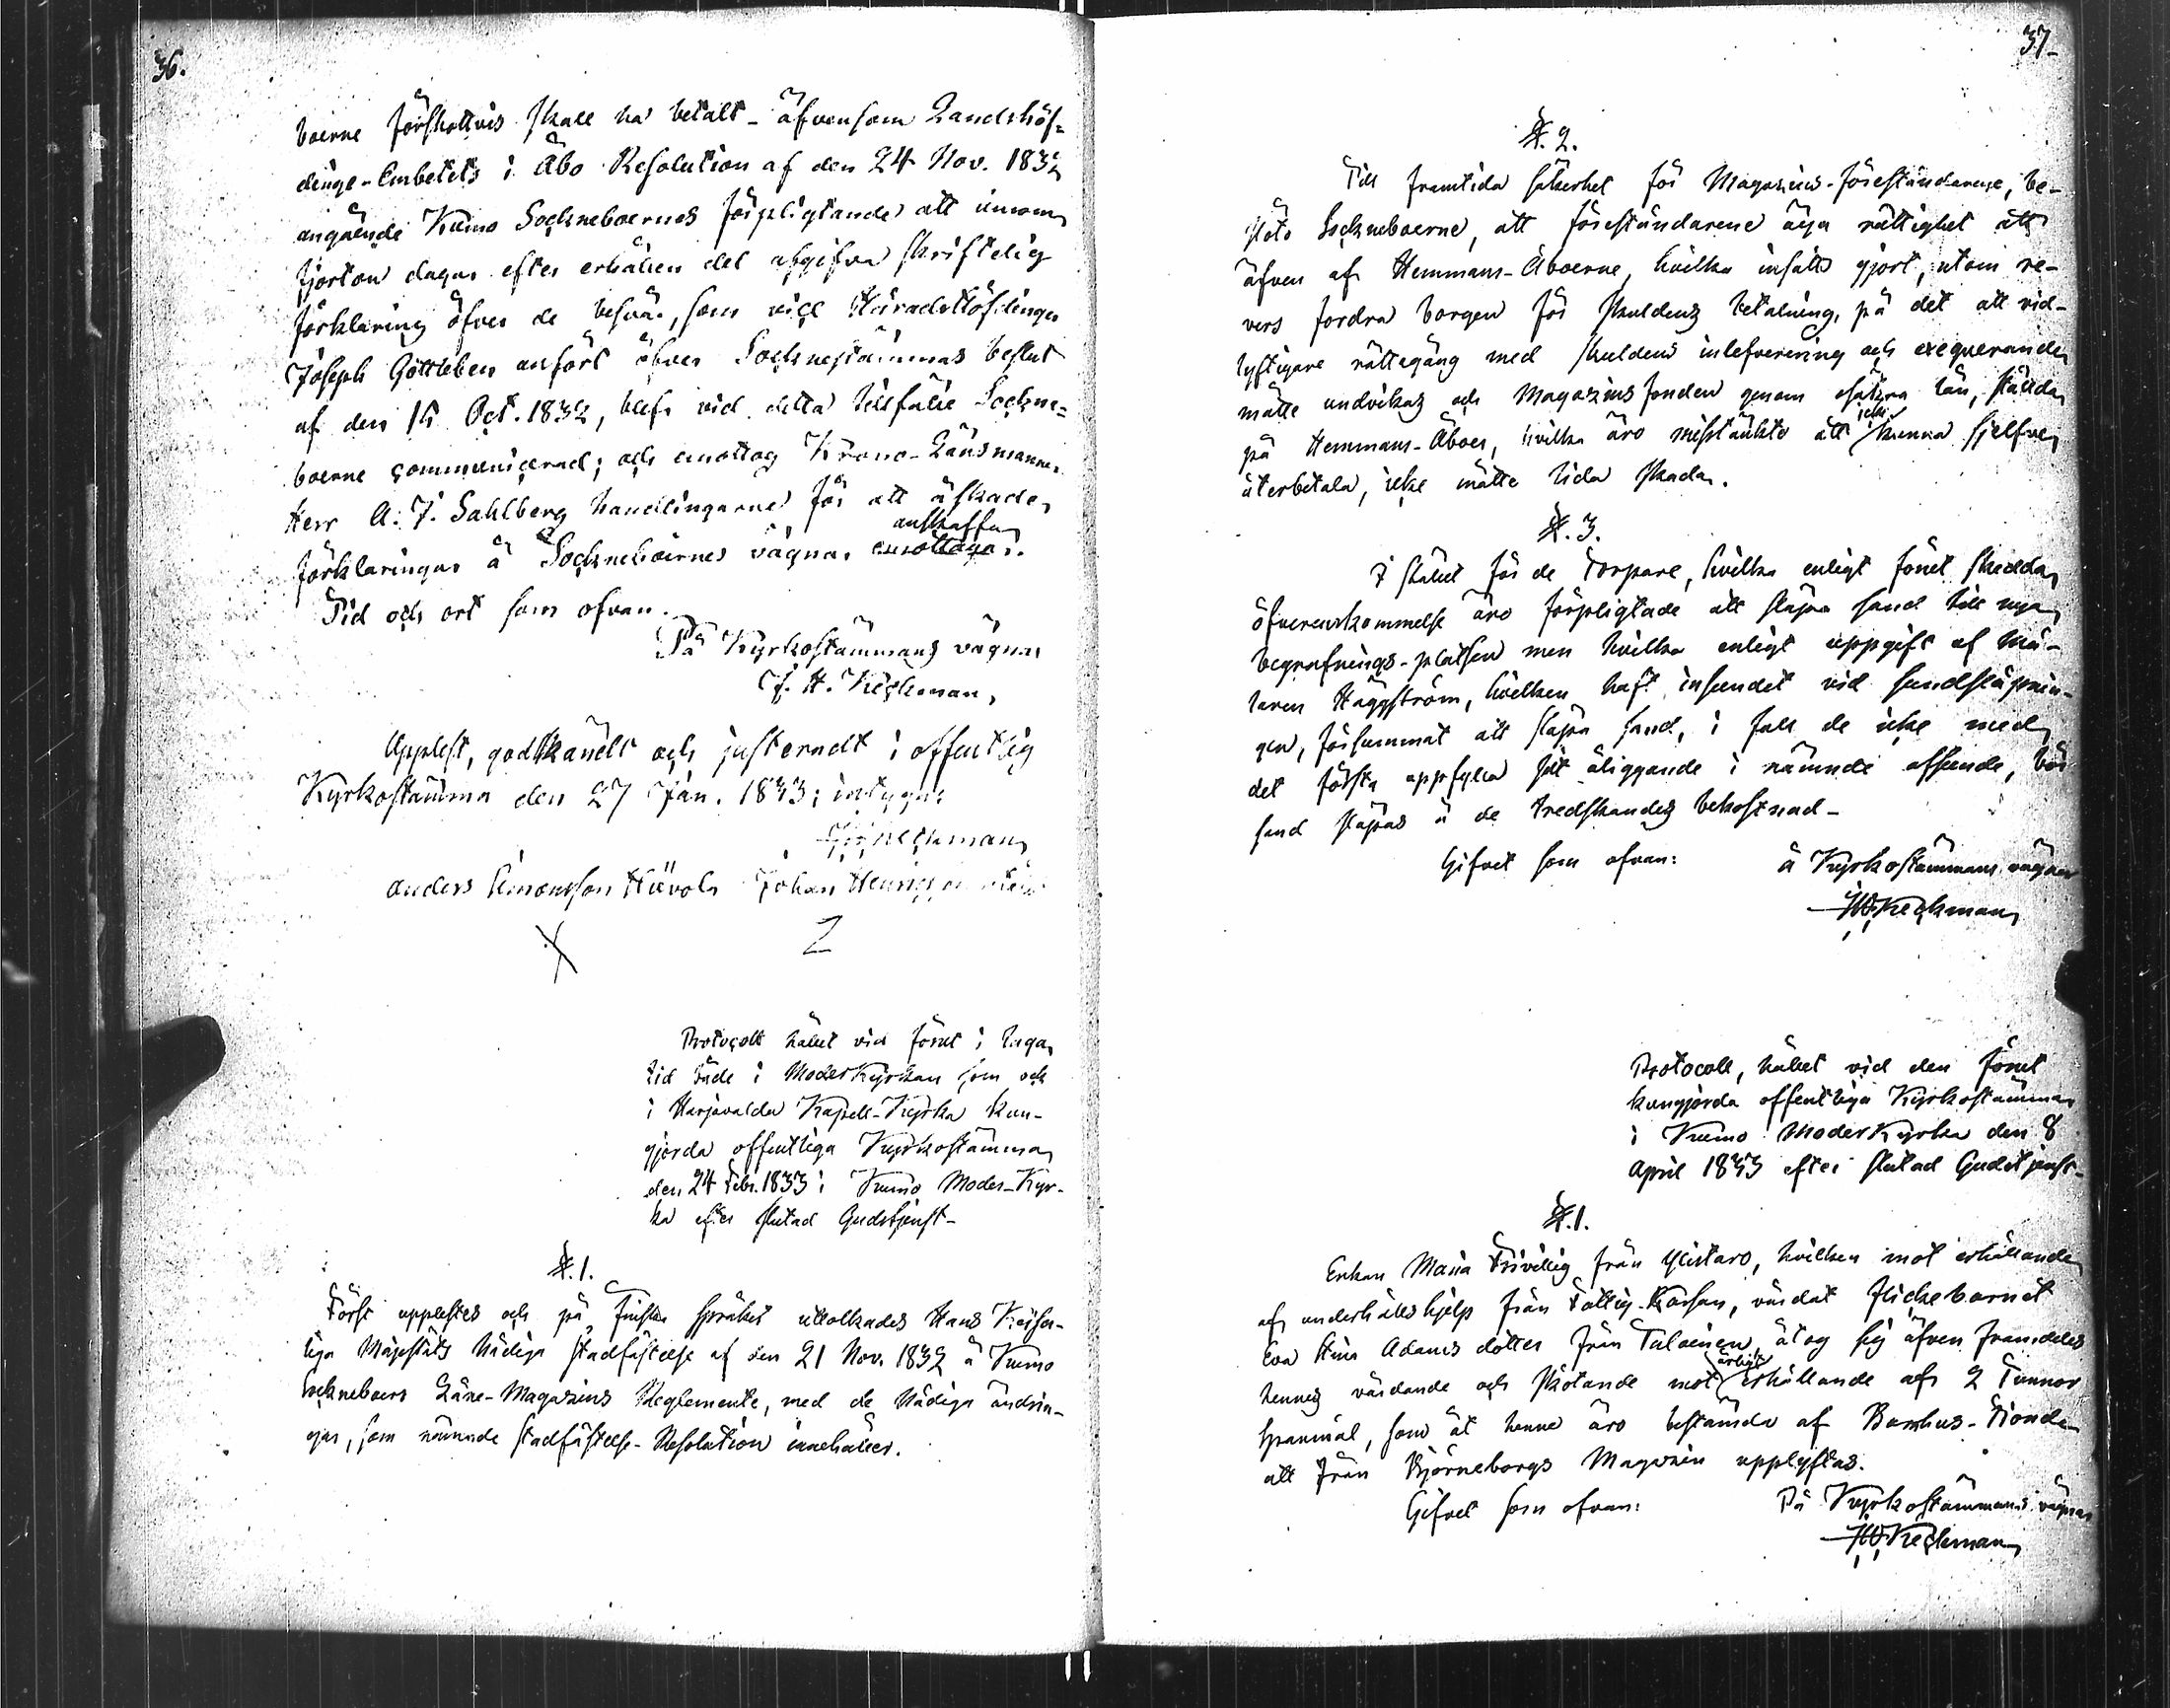 36.
boerne förskottvis skall ha betalt - äfvensom Landshöf=
dinge-Embetets i Åbo Resolution af den 24 Nov. 1832
angående Kumo Sockneboernes förpligtande att innom
fjorton dagar efter erhållen del afgifva skriftelig
förklaring öfver de besvär, som vice Häradshöfdingen
Joseph Gottleben anfört öfver Socknestämmas beslut
af den 15 Oct. 1832, blef vid detta tillfälle Sockne=
boerne communicerad; och emottog Krono-Länsmannen
Herr A. J. Sahlberg handlingarne för att äskade
anskaffa
förklaringar å Sockneboernes vägnar emottaga.
Tid och ort som ofvan.
På Kyrkostämmans vägnar
J. H. Keckman
Upplest, godkändt och justeradt i offentlig
Kyrkostämma den 27 Jan. 1833; intyga:
Keckman
Anders Simonsson Hiivola Johan Henriksson
Protocoll hållet vid förut i laga
tid både i Moderkyrkan som och
i Harjavalda Kapell-Kyrka kun-
gjorda offentliga Kyrkostämma
den 24 Febr. 1833 i Kumo Moder-Kyr-
ka efter slutad Gudstjenst-
§. 1.
Först upplästes och på finska språket uttolkades Hans Kejser-
liga Majestäts Nådiga stadfästelse af den 21 Nov. 1832 å Kumo
Sockneboers Låne-Magasins Reglemente, med de Nådiga ändrin-
gar, som nämnde stadfästelse-Resolution innehåller.
37.
§. 2.
Till framtida säkerhet för Magasins-föreståndarene, be-
slöto Sockneboerne, att föreståndarene äga rättighet att
äfven af Hemmans-Åboerne, hvilka insatts gjort, utom re-
vers fordra borgen för skuldens betalning, på det att vid-
lyftigare rättegång med skuldens inlefverering och exequerande
måtte undvikas och Magasins fonden genom osäkra lån, stälda
icke
på Hemmans-Åboer, hvilka äro misstänkte att kunna sjelfve
återbetala, icke måtte lida skada.
§. 3.
I stället för de Torpare, hvilka enligt förut skedda
öfverenskommelse äro förpligtade att släpa sand till nya
begrafnings-platsen men hvilka enligt uppgift af Må-
laren Häggström, hvilken haft inseendet vid sandsläpnin-
gen, försummat att släpa sand, i fall de icke med
det första uppfylla sitt åliggande i nämnde afseende, bör
sand släpas å de tredskandes bekostnad-
Gifvet som ofvan: å Kyrkostämmans vägnar
JH Keckman
Protocoll, hållet vid den förut
kungjorda offentliga Kyrkostämman
i Kumo Moderkyrka den 8
April 1833 efter slutad Gudstjenst-
§. 1.
Enkan Maria Frivillig från Ylistaro, hvilken mot erhållande
af underhållshjelp från Fattig-Kassan, vårdat Flickebarnet
Eva Stina Adams dotter från Tuloinen, åtog sig äfven framdeles
årligt
hennes vårdande och skötande mot erhållande af 2 Tunnor
Spanmål, som åt henne äro bestämda af Barnhus-Fonden
att från Björneborgs Magasin upplyftas.
Gifvet som ofvan: På Kyrkostämmans vägnar
JH Keckman